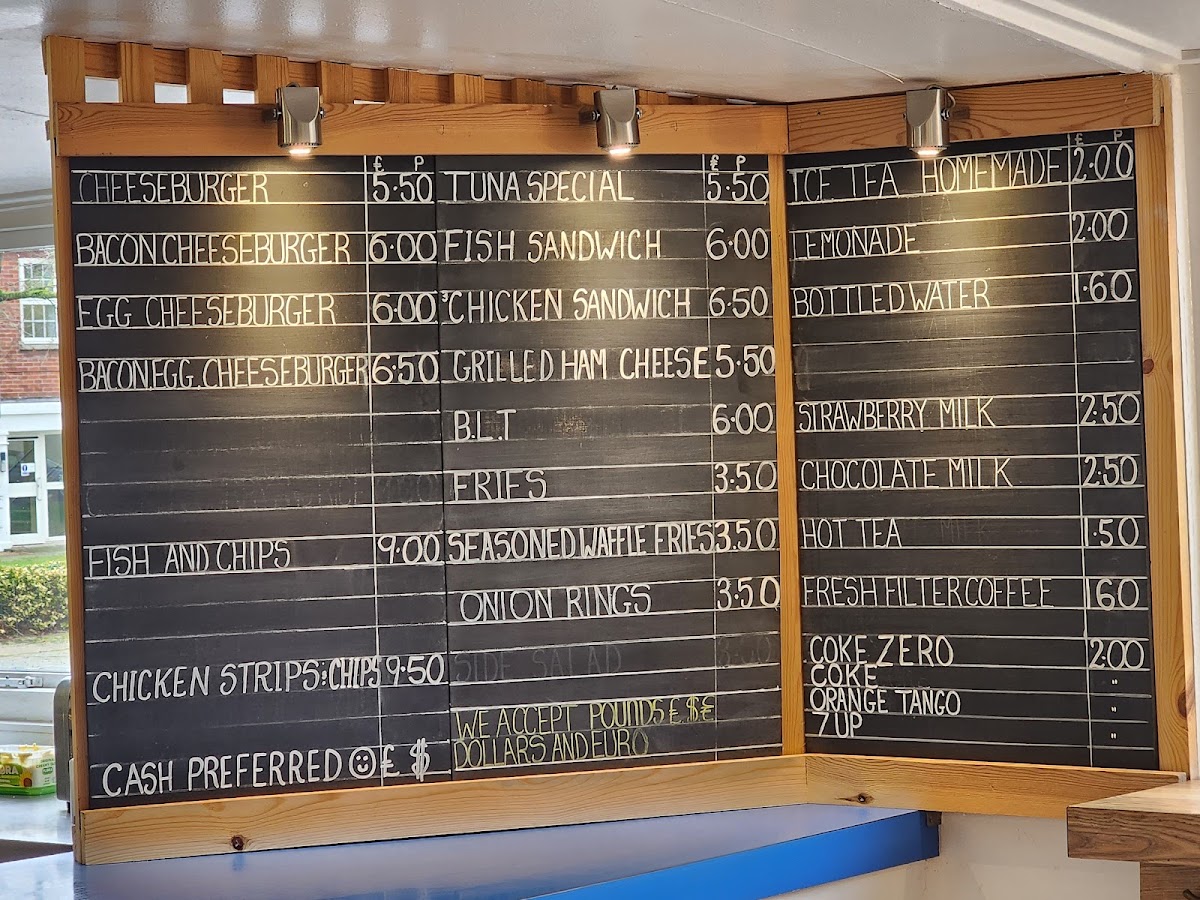 £ P
CHEESEBURGER 5.50
BACON CHEESEBURGER 6.00
EGG CHEESEBURGER 6.00
BACON.EGG.CHEESEBURGER 6.50
FISH AND CHIPS 9.00
CHICKEN STRIPS:CHIPS 9.50
CASH PREFERRED ☺ £ $
£ P
TUNA SPECIAL 5.50
FISH SANDWICH 6.00
CHICKEN SANDWICH 6.50
GRILLED HAM CHEESE 5.50
B.L.T 6.00
FRIES 3.50
SEASONED WAFFLE FRIES 3.50
ONION RINGS 3.50
SIDE SALAD
WE ACCEPT POUNDS £ $ €
DOLLARS AND EURO
£ P
ICE TEA HOMEMADE 2.00
LEMONADE 2.00
BOTTLED WATER 1.60
STRAWBERRY MILK 2.50
CHOCOLATE MILK 2.50
HOT TEA MILK 1.50
FRESH FILTER COFFEE 160
COKE ZERO 2.00
COKE "
ORANGE TANGO "
7UP "